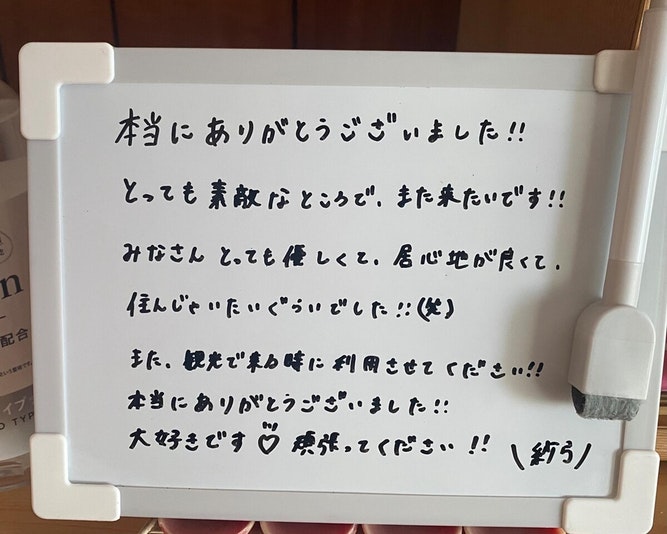 本当にありがとうございました!!
とっても素敵なところで、また来たいです!!
みなさんとっても優しくて、居心地が良くて、
住んじゃいたいぐらいでした!!(笑)
また、観光で来る時に利用させてください!!
本当にありがとうございました!!
大好きです♡ 頑張ってください!!
配合